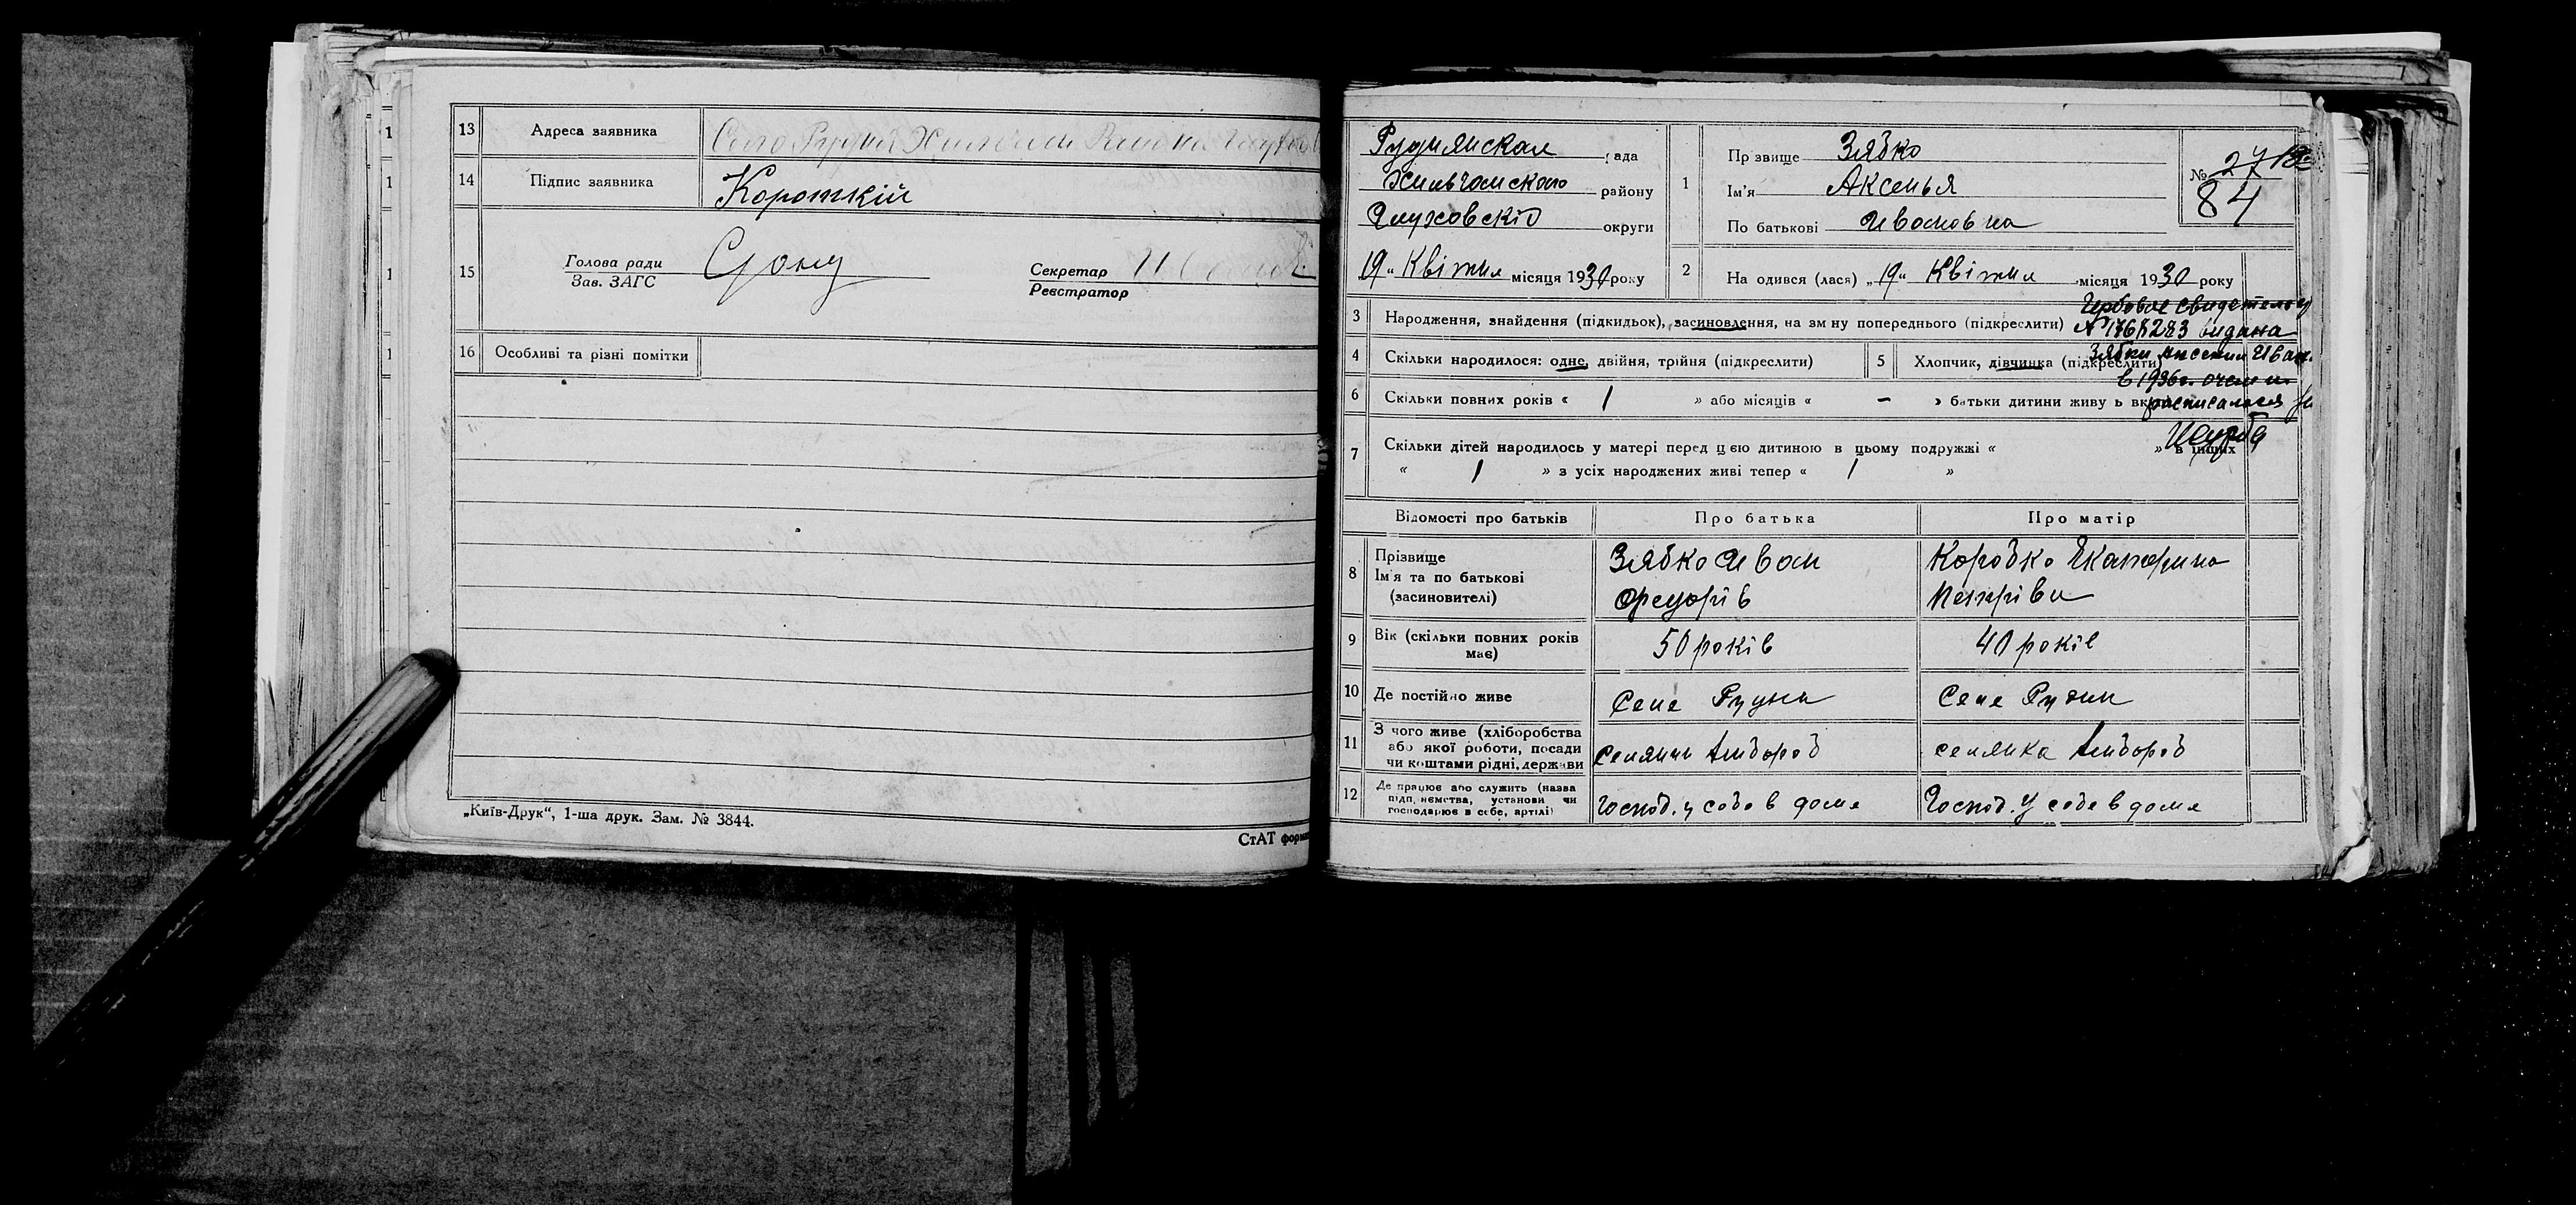 13 Адреса заявника Село Рудня
14 Підпис заявника Короткій
15 Голова ради
Зав. ЗАГС
Секретар
Реєстратор
16 Особливі та різні помітки
„Київ-Друк“, 1-ша друк. Зам. № 3844.
СтАТ форма
Руднянская рада
району
Глуховскіо округи
„19“ Квітня місяця 1930 року
1 Пр звище Зябко
Ім'я Аксенья
По батькові Ивановна
№ 27
84
2 На одився (лася) „19“ Квітня місяця 1930 року
Гербовое свидетельст
3 Народження, знайдення (підкидьок), засиновлення, на зм ну попереднього (підкреслити)
№ 1768283 видана
4 Скільки народилося: одне, двійня, трійня (підкреслити)
5 Хлопчик, дівчинка (підкреслити)
Зябки Аксении Иван.
в 1936г. о чем и
6 Скільки повних років « 1 » або місяців « – » батьки дитини живу ь вк
расписалася
7 Скільки дітей народилось у матері перед ц єю дитиною в цьому подружжі « » в інших
« 1 » з усіх народжених живі тепер « 1 »
Відомості про батьків Про батька Про матір
8 Прізвище
Ім'я та по батькові
(засиновителі)
Зябко Иван
Федорів
Коробко Екатерина
Петрівн
9 Вік (скільки повних років
має)
50 років
40 років
10 Де постійно живе
Селе Рудни
Селе Рудни
11 З чого живе (хліборобства
або якої роботи, посади
чи коштами рідні, держави
селянин хлібороб
селянка хлібороб
12 Де працює або служить (назва
підп. ємства, установи чи
господарює в себе, артілі)
господ. у себе в доме
Господ. у себе в доме